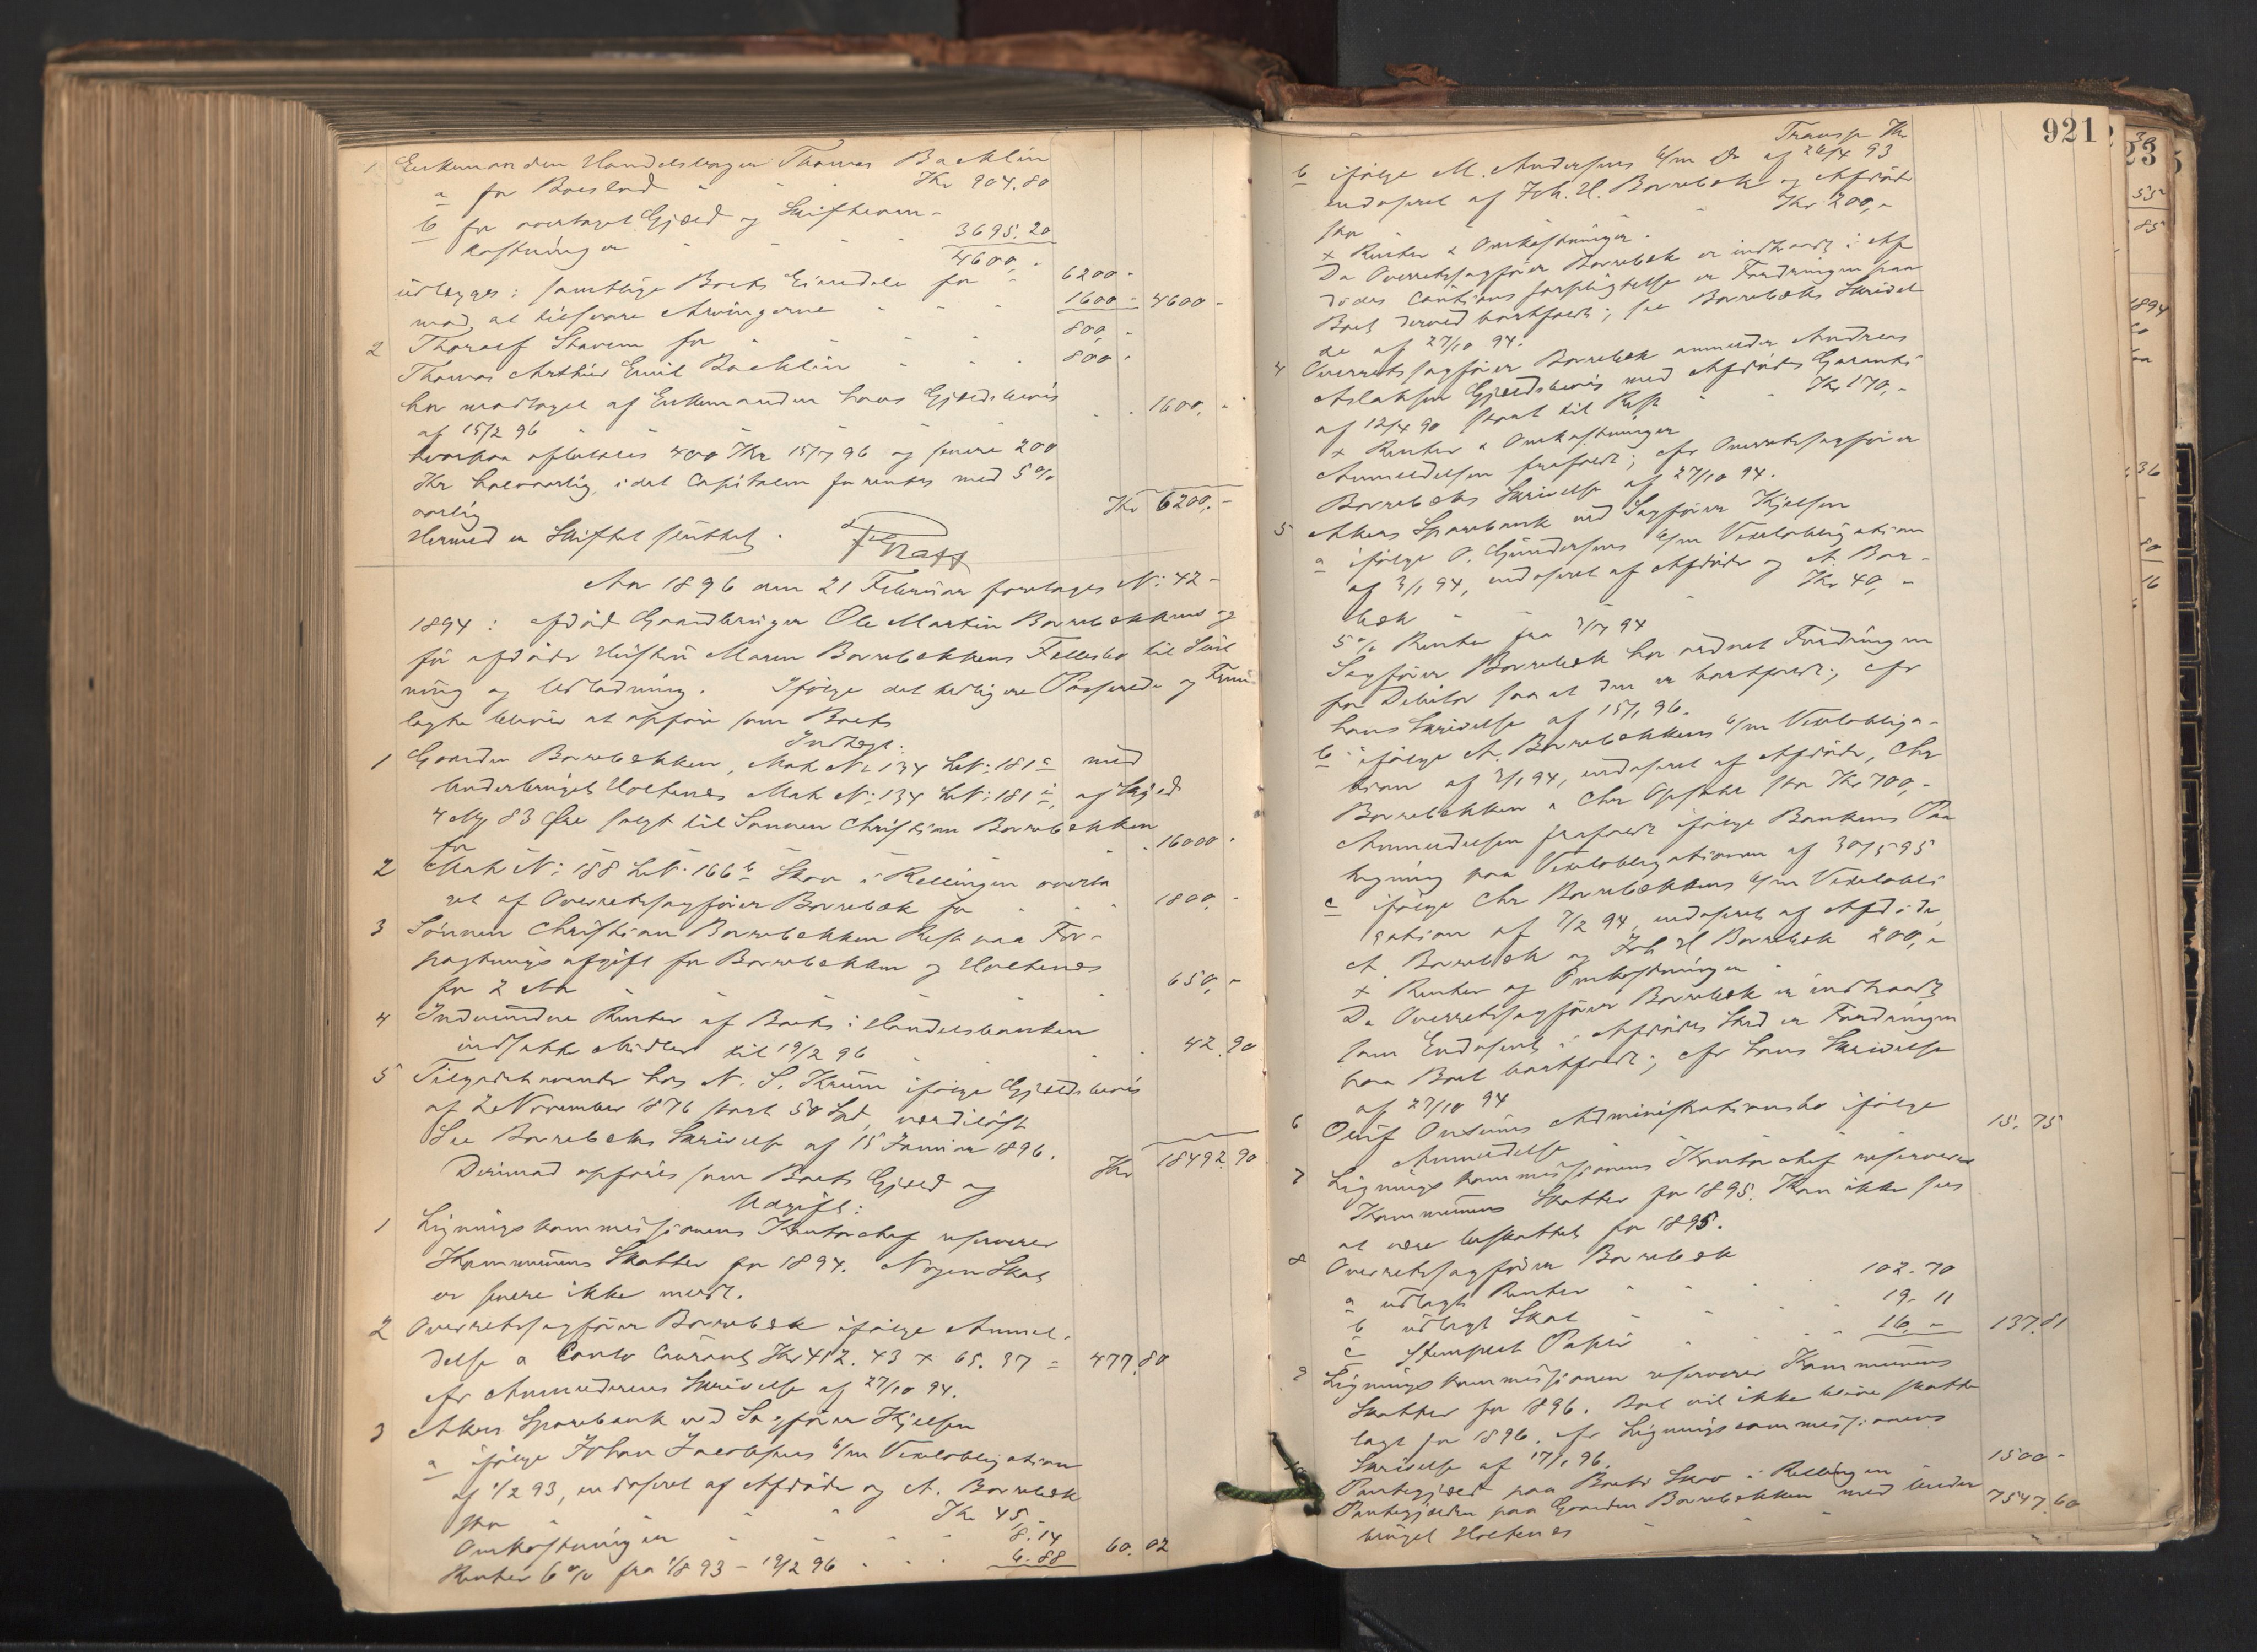 1 Enkemanden Handelsborger Thomas Backlin
a for Boeslod " " " Kr 904.80
b for overtaget Gjæld og Skifteom-
kostninger " " " 3695.20
4600,-
udlægges: samtlige Boets Eiendele for " 6200 -
mod at tilsvare Arvingerne " " " 1600 - 4600 -
2 Thoralf Stavem for " " " 800,-
Thomas Arthur Emil Backlin " " " 800 -
har modtaget af Enkemanden hans Gjældsbevis
af 15/2 96 " " " " " 1600,-
hvorpaa afbetales 400 Kr 15/7 96 og senere 200
Kr halvaarlig, idet Capitalen forrentes med 5%
aarlig
Kr 6200,-
Hermed er Skiftet sluttet.
Aar 1896 den 21 Februar foretages No: 42-
1894: afdød Gaardbruger Ole Martin Borrebækkens og
før afdøde Hustru Maren Borrebækkens Fellesbo til Slut
ning og Udlodning. Ifølge det tidligere Passerede og Frem
lagte bliver at opføre som Boets
Indtægt:
1 Gaarden Borrebækken, Mat No 134 LNo: 181a med
Underbruget Holtenæs Mat No: 134 LNo: 181i, af Skyld
4 My 83 Øre solgt til Sønnen Christian Borrebækken
for " " " " " 16000 -
2 Mat No: 188 LNo: 166b Skov i Rellingen overta
get af Overretssagfører Borrebæk for " " 1800,-
3 Sønnen Christian Borrebækken Rest paa For-
pagtningsafgift for Borrebækken og Holtenæs
for 2 Aar " " " " 650,-
4 Indvundne Renter af Boets i Handelsbanken
indsatte Midler til 19/2 96 " " " 42.90
5 Tilgodehavende hos N. S. Krum ifølge Gjældsbevis
af 2 November 1876 stort 50 Spd, værdiløst
See Borrebæks Skrivelse af 15 Januar 1896.
Kr 18492.90
Derimod opføres som Boets Gjæld og
Udgift:
1 Ligningskommissionens Kontorchef reserverer
Kommunens Skatter for 1894. Nogen Skat
er senere ikke meldt.
2 Overretssagfører Borrebæk ifølge Anmel-
delse a Conto Courant Kr 412.43 + 65.37 = 477.80
cfr Anmelderens Skrivelse af 27/10 94.
3 Akers Sparebank ved Sagfører Kjelsen
a ifølge Johan Jacobsens b/m Vexelobligation
af 1/2 93, endoseret af Afdøde og A. Borrebæk
stor " " " Kr 45,-
Omkostninger " " " 8.14
Renter 6% fra 1/8 93 - 19/2 96 " " " 6.88 60.02
921
Transp Kr
b ifølge M. Andersens b/m Do af 26/4 93
endoseret af Joh. H. Borrebæk og Afdøde
stor " " " Kr 200,-
+ Renter & Omkostninger.
Da Overretssagfører Borrebæk er indtraadt i Af
dødes Cautionsforpligtelse er Fordringen paa
Boet derved bortfaldt; see Borrebæks Skrivel
se af 27/10 94.
4 Overretssagfører Borrebæk anmelder Andreas
Aslaksens Gjældsbevis med Afdødes Garanti
af 12/4 90 stort til Rest " " Kr 170,-
+ Renter & Omkostninger
Anmeldelsen frafaldt; cfr Overretssagfører
Borrebæks Skrivelse af 27/10 94.
5 Akers Sparebank ved Sagfører Kjelsen
a ifølge O. Gundersens b/m Vexelobligation
af 3/1 94, endoseret af Afdøde og A. Borre-
bæk " " " Kr 40,-
5% Renter fra 3/7 94
Sagfører Borrebæk har ordnet Fordringen
for Debitor saa at den er bortfaldt; cfr
hans Skrivelse af 15/1 96.
b ifølge A. Borrebækkens b/m Vexelobliga-
tion af 3/1 94, endoseret af Afdøde, Chr
Borrebækken & Chr Opsahl stor Kr 700,-
Anmeldelsen frafaldt ifølge Bankens Paa
tegning paa Vexelobligationen af 30/5 95
c ifølge Chr Borrebækkens b/m Vexelobli
gation af 7/2 94, endoseret af Afdøde,
A. Borrebæk og Joh H Borrebæk 200,-
+ Renter og Omkostninger "
Da Overretssagfører Borrebæk er indtraadt
som Endosent i Afdødes Sted er Fordringen
paa Boet bortfaldt; cfr hans Skrivelse
af 27/10 94
6 Oluf Onsums Administrationsbo ifølge
Anmeldelse " " " 15.75
7 Ligningskommissionens Kontorchef reserverer
Kommunens Skatter for 1895. Kan ikke sees
at være beskattet for 1895.
8 Overretssagfører Borrebæk
a udlagt Renter " " " 102.70
b udlagt Skat " " " 19.11
c Stemplet Papir " " " 16.- 137.81
9 Ligningskommissionen reserverer Kommunens
Skatter for 1896. Boet vil ikke blive skatte
lagt for 1896. cfr Ligningscommissionens
Skrivelse af 17/1 96.
Pantegjæld paa Boets Skov i Rellingen " 1500 -
Pantegjælden paa Gaarden Borrebækken med Under
bruget Holtenæs " " " 7547.60